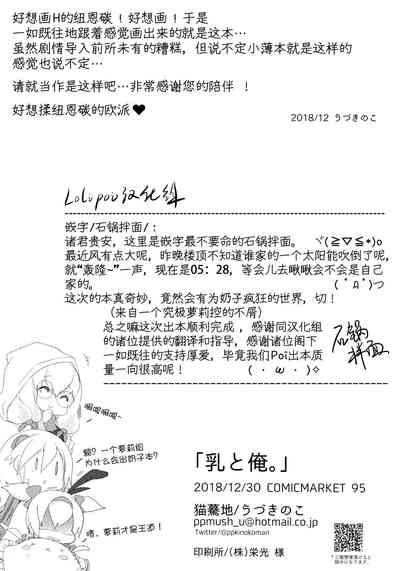 好想画H的纽恩碳！好想画！于是
一如既往地跟着感觉画出来的就是这本…
虽然剧情导入前所未有的糟糕，但说不定小薄本就是这样的
感觉也说不定…
请就当作是这样吧…非常感谢您的陪伴！
好想揉纽恩碳的欧派♥
2018/12 うづきのこ
Lolipoi汉化组
嵌字/石锅拌面/：
诸君贵安，这里是嵌字最不要命的石锅拌面。 ヾ(≧▽≦*)o
最近风有点大呢，昨晚楼顶不知道谁家的一个太阳能吹倒了呢，
就“轰隆~”一声，现在是05：28，等会儿去瞅瞅会不会是自己
家的。 ( ﾟДﾟ)つ
这次的本真奇妙，竟然会有为奶子疯狂的世界，切！
（来自一个究极萝莉控的不屑）
总之嘛这次出本顺利完成，感谢同汉化组
的诸位提供的翻译和指导，感谢诸位阁下
一如既往的支持厚爱，毕竟我们Poi出本质
量一向很高呢！ (・ω・)✧
石锅
拌面
嗯嗯嗯~
额？一个萝莉组
为什么会出奶子本？
啧，萝莉才是王道！
「乳と俺。」
2018/12/30 COMICMARKET 95
猫驀地/うづきのこ
ppmush_u@hotmail.co.jp
Twitter/@ppkinokoman
印刷所/(株)栄光 様